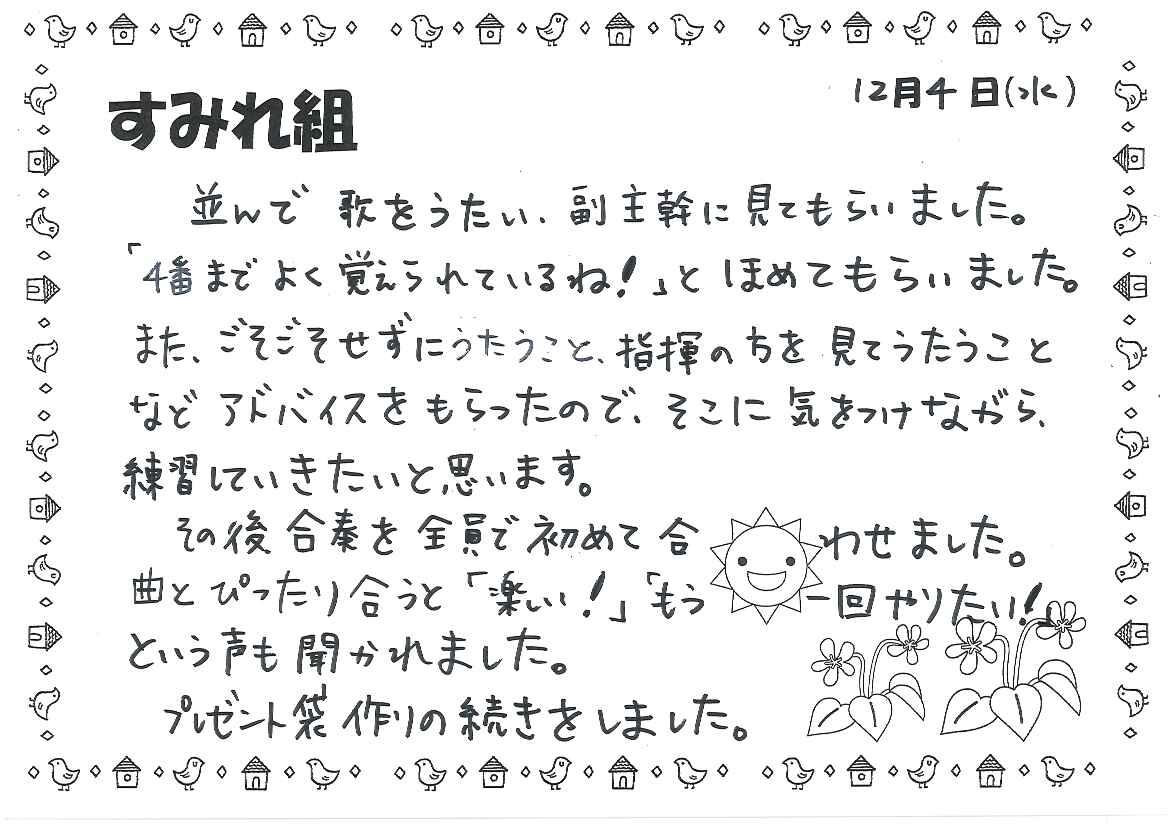 すみれ組
12月4日(水)
並んで歌をうたい、副主幹に見てもらいました。
「4番までよく覚えられているね!」とほめてもらいました。
また、ごそごそせずにうたうこと、指揮の方を見てうたうこと
などアドバイスをもらったので、そこに気をつけながら、
練習していきたいと思います。
その後合奏を全員で初めて合わせました。
曲とぴったり合うと「楽しい!」「もう一回やりたい!」
という声も聞かれました。
プレゼント袋作りの続きをしました。